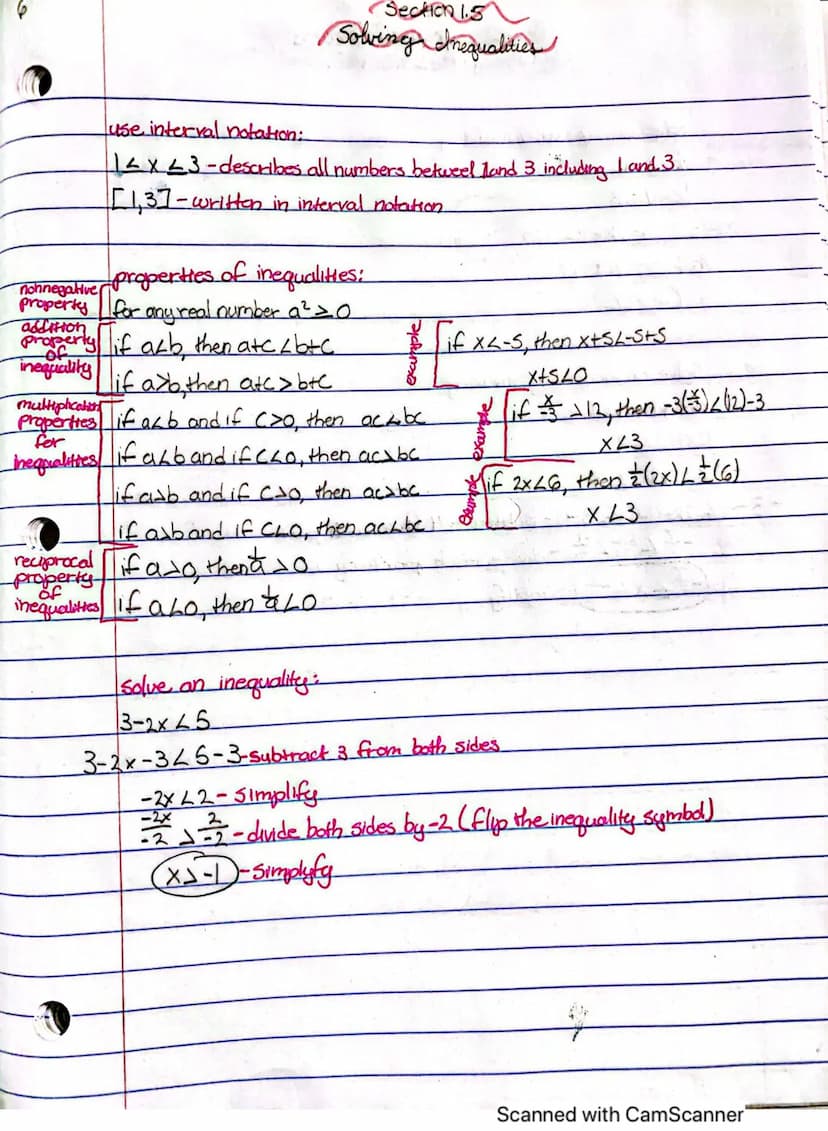 6
Section 1.5
Solving Inequalities
use interval notation:
1≤x≤3 - describes all numbers betweel 1 and 3 including 1 and 3
[1,3] - written in interval notation
properties of inequalities:
nonnegative property
for any real number a² ≥ 0
addition property of inequality
if a<b, then a+c<b+c
if a>b, then a+c>b+c
example
if x<-5, then x+5<-5+5
x+5<0
multiplication properties for inequalities
if a<b and if c>0, then ac<bc
if a<b and if c<0, then ac>bc
if a>b and if c>0, then ac>bc
if a>b and if c<0, then ac<bc
example
if x/-3 >12, then -3(x/-3)<(12)-3
x<3
example
if 2x<6, then 1/2(2x)<1/2(6)
x<3
reciprocal property of inequalities
if a>0, then 1/a >0
if a<0, then 1/a <0
solve an inequality:
3-2x<5
3-2x-3<5-3 - subtract 3 from both sides
-2x<2 - simplify
-2x/-2 > 2/-2 - divide both sides by -2 (flip the inequality symbol)
x>-1 - simplyfy
Scanned with CamScanner